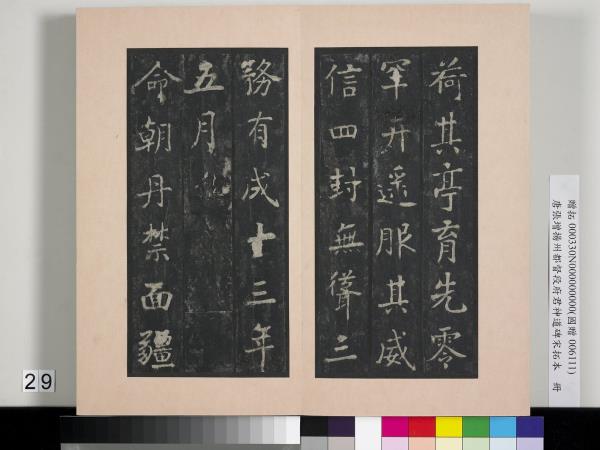 荷其亭育先零
罕幵遥服其威
信四封無聳三
務有成十三年
五月
命朝丹禁面疆
贈拓 000330N000000000(國贈 006111)
唐張增揚州都督段府君神道碑宋拓本 冊
29